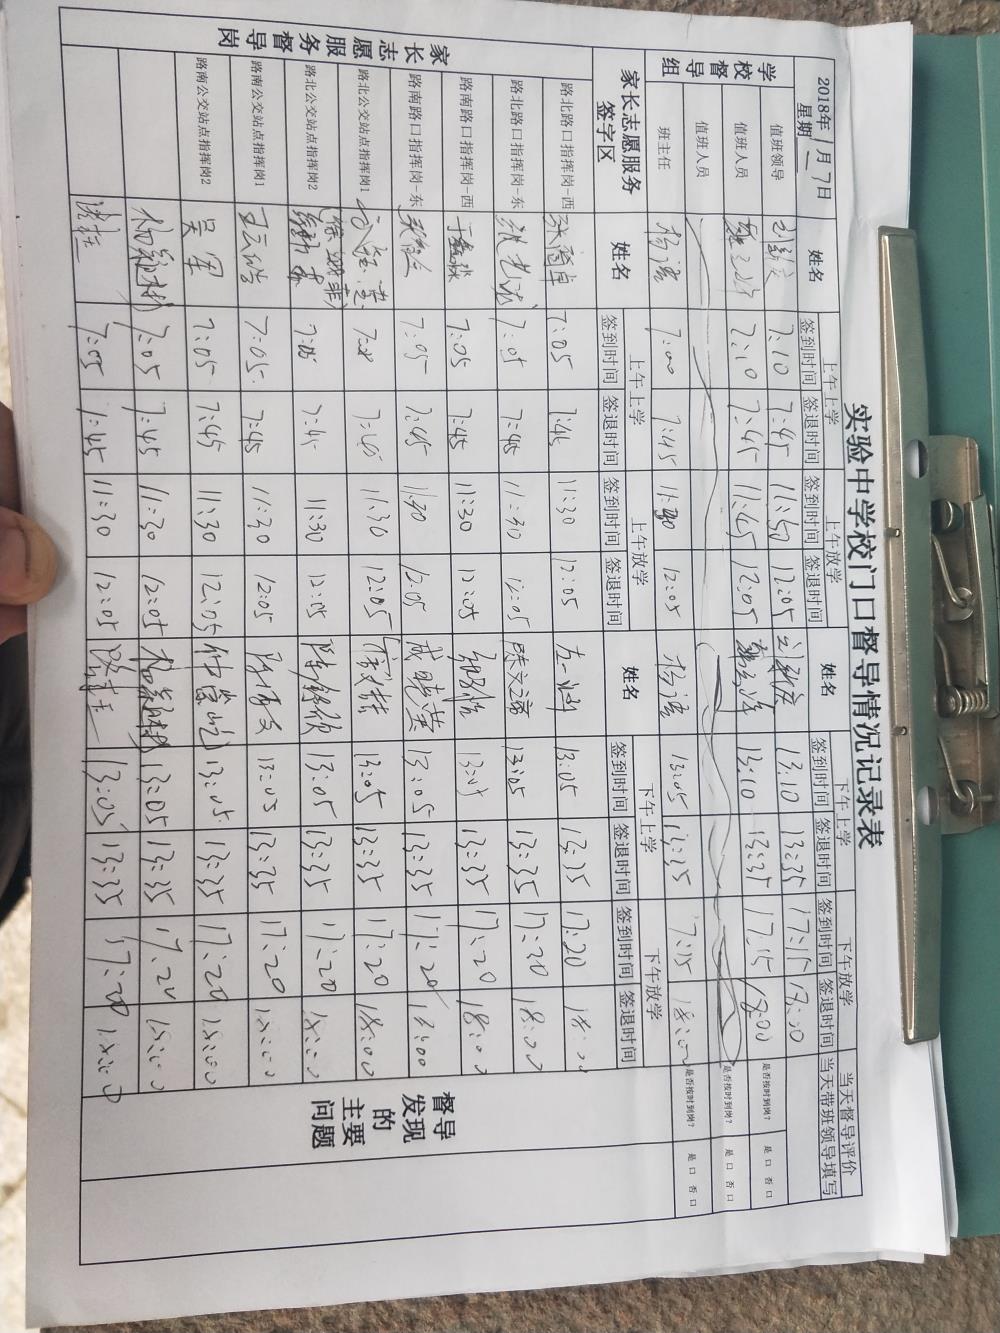 实验中学校门口督导情况记录表
2018年1月17日 星期一 姓名 上午上学 上午放学 姓名 下午上学 下午放学 当天督导评价
签到时间 签退时间 签到时间 签退时间 签到时间 签退时间 签到时间 签退时间 当天带班领导填写
学校督导组
值班领导 7:10 7:45 11:50 12:05 13:10 13:35 17:15 18:00
值班人员 7:10 7:45 11:45 12:05 13:10 13:35 17:15 18:00 是否按时到岗? 是口 否口
值班人员 是否按时到岗? 是口 否口
班主任 杨潇 7:00 7:45 12:05 杨潇 13:05 13:35 17:15 18:00 是否按时到岗? 是口 否口
家长志愿服务签字区 姓名 上午上学 上午放学 姓名 下午上学 下午放学
签到时间 签退时间 签到时间 签退时间 签到时间 签退时间 签到时间 签退时间
家长志愿服务督导岗
路北路口指挥岗-西 7:05 7:45 11:30 12:05 13:05 13:35 17:20 18:00
路北路口指挥岗-东 7:05 7:45 11:30 12:05 陈文 13:05 13:35 17:30 18:00
路南路口指挥岗-西 7:05 7:45 11:30 12:05 13:05 13:35 17:20 18:00
路南路口指挥岗-东 7:05 7:45 11:30 12:05 成晓英 13:05 13:35 17:20 18:00
路北公交站点指挥岗1 11:30 12:05 13:05 13:35 17:20 18:00
路北公交站点指挥岗2 7:05 7:45 11:30 12:05 13:05 13:35 17:20 18:00
路南公交站点指挥岗1 王云皓 7:05 7:45 11:30 12:05 13:05 13:35 17:20 18:00
路南公交站点指挥岗2 吴军 7:05 7:45 11:30 12:05 13:05 13:35 17:20 18:00
7:05 7:45 11:30 12:05 13:05 13:35 17:20 18:00
7:05 7:45 11:30 12:05 13:05 13:35 17:20 18:00
督导发现的主要问题